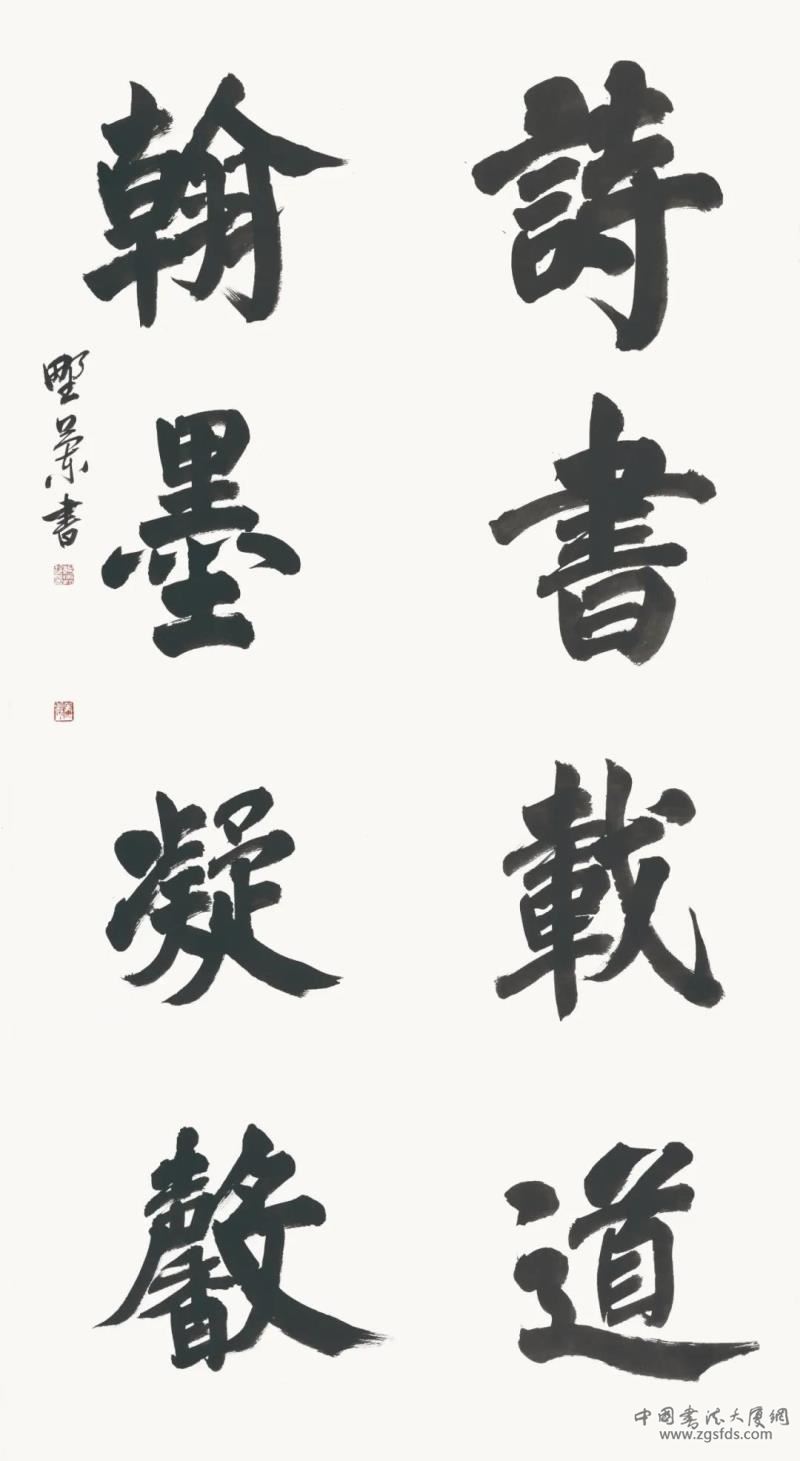 詩書載道
翰墨凝馨
野蘭書
中國書法大廈網
www.zgsfds.com